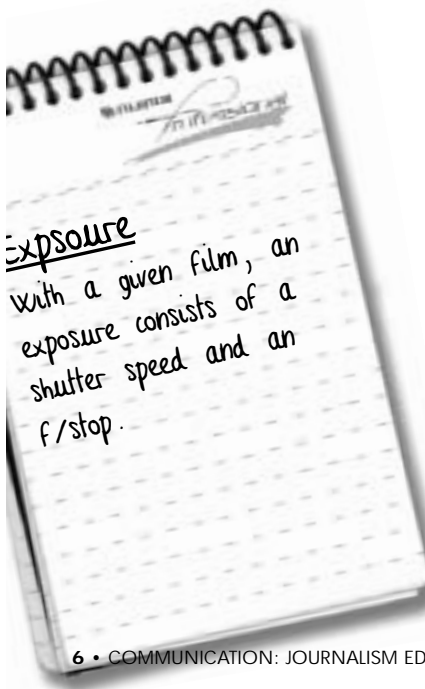 FUJIFILM
Expsoure
With a given film, an
exposure consists of a
shutter speed and an
f/stop.
6 • COMMUNICATION: JOURNALISM ED